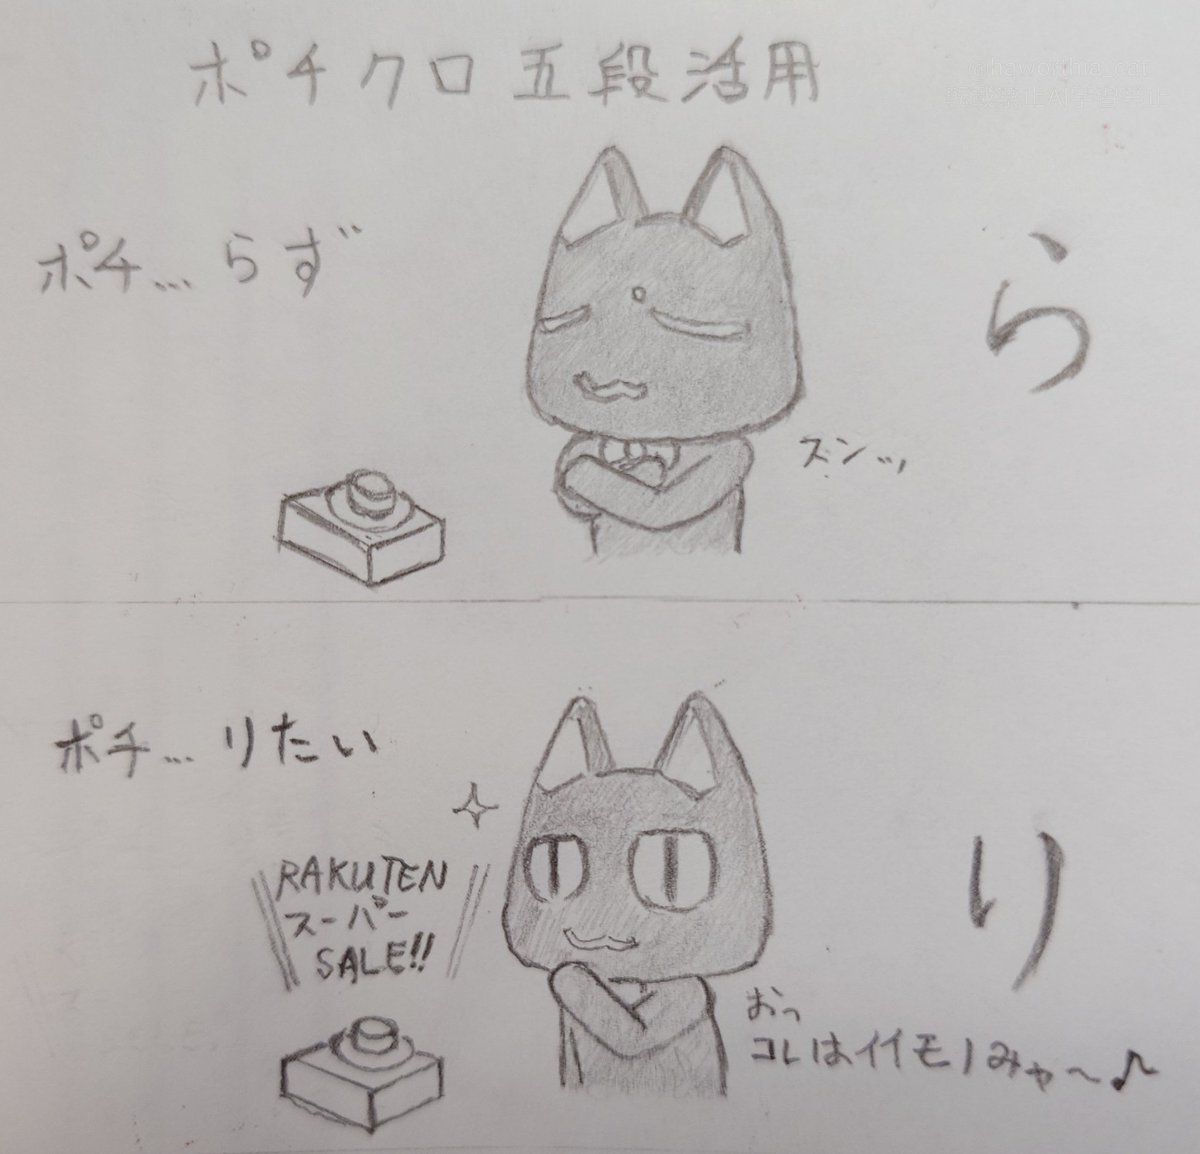 ポチクロ五段活用
@haworthia_cat
ポチ…らず
ら
ズンッ
ポチ…りたい
RAKUTEN
スーパー
SALE!!
り
おっ
コレはイイモノみゃ～♪